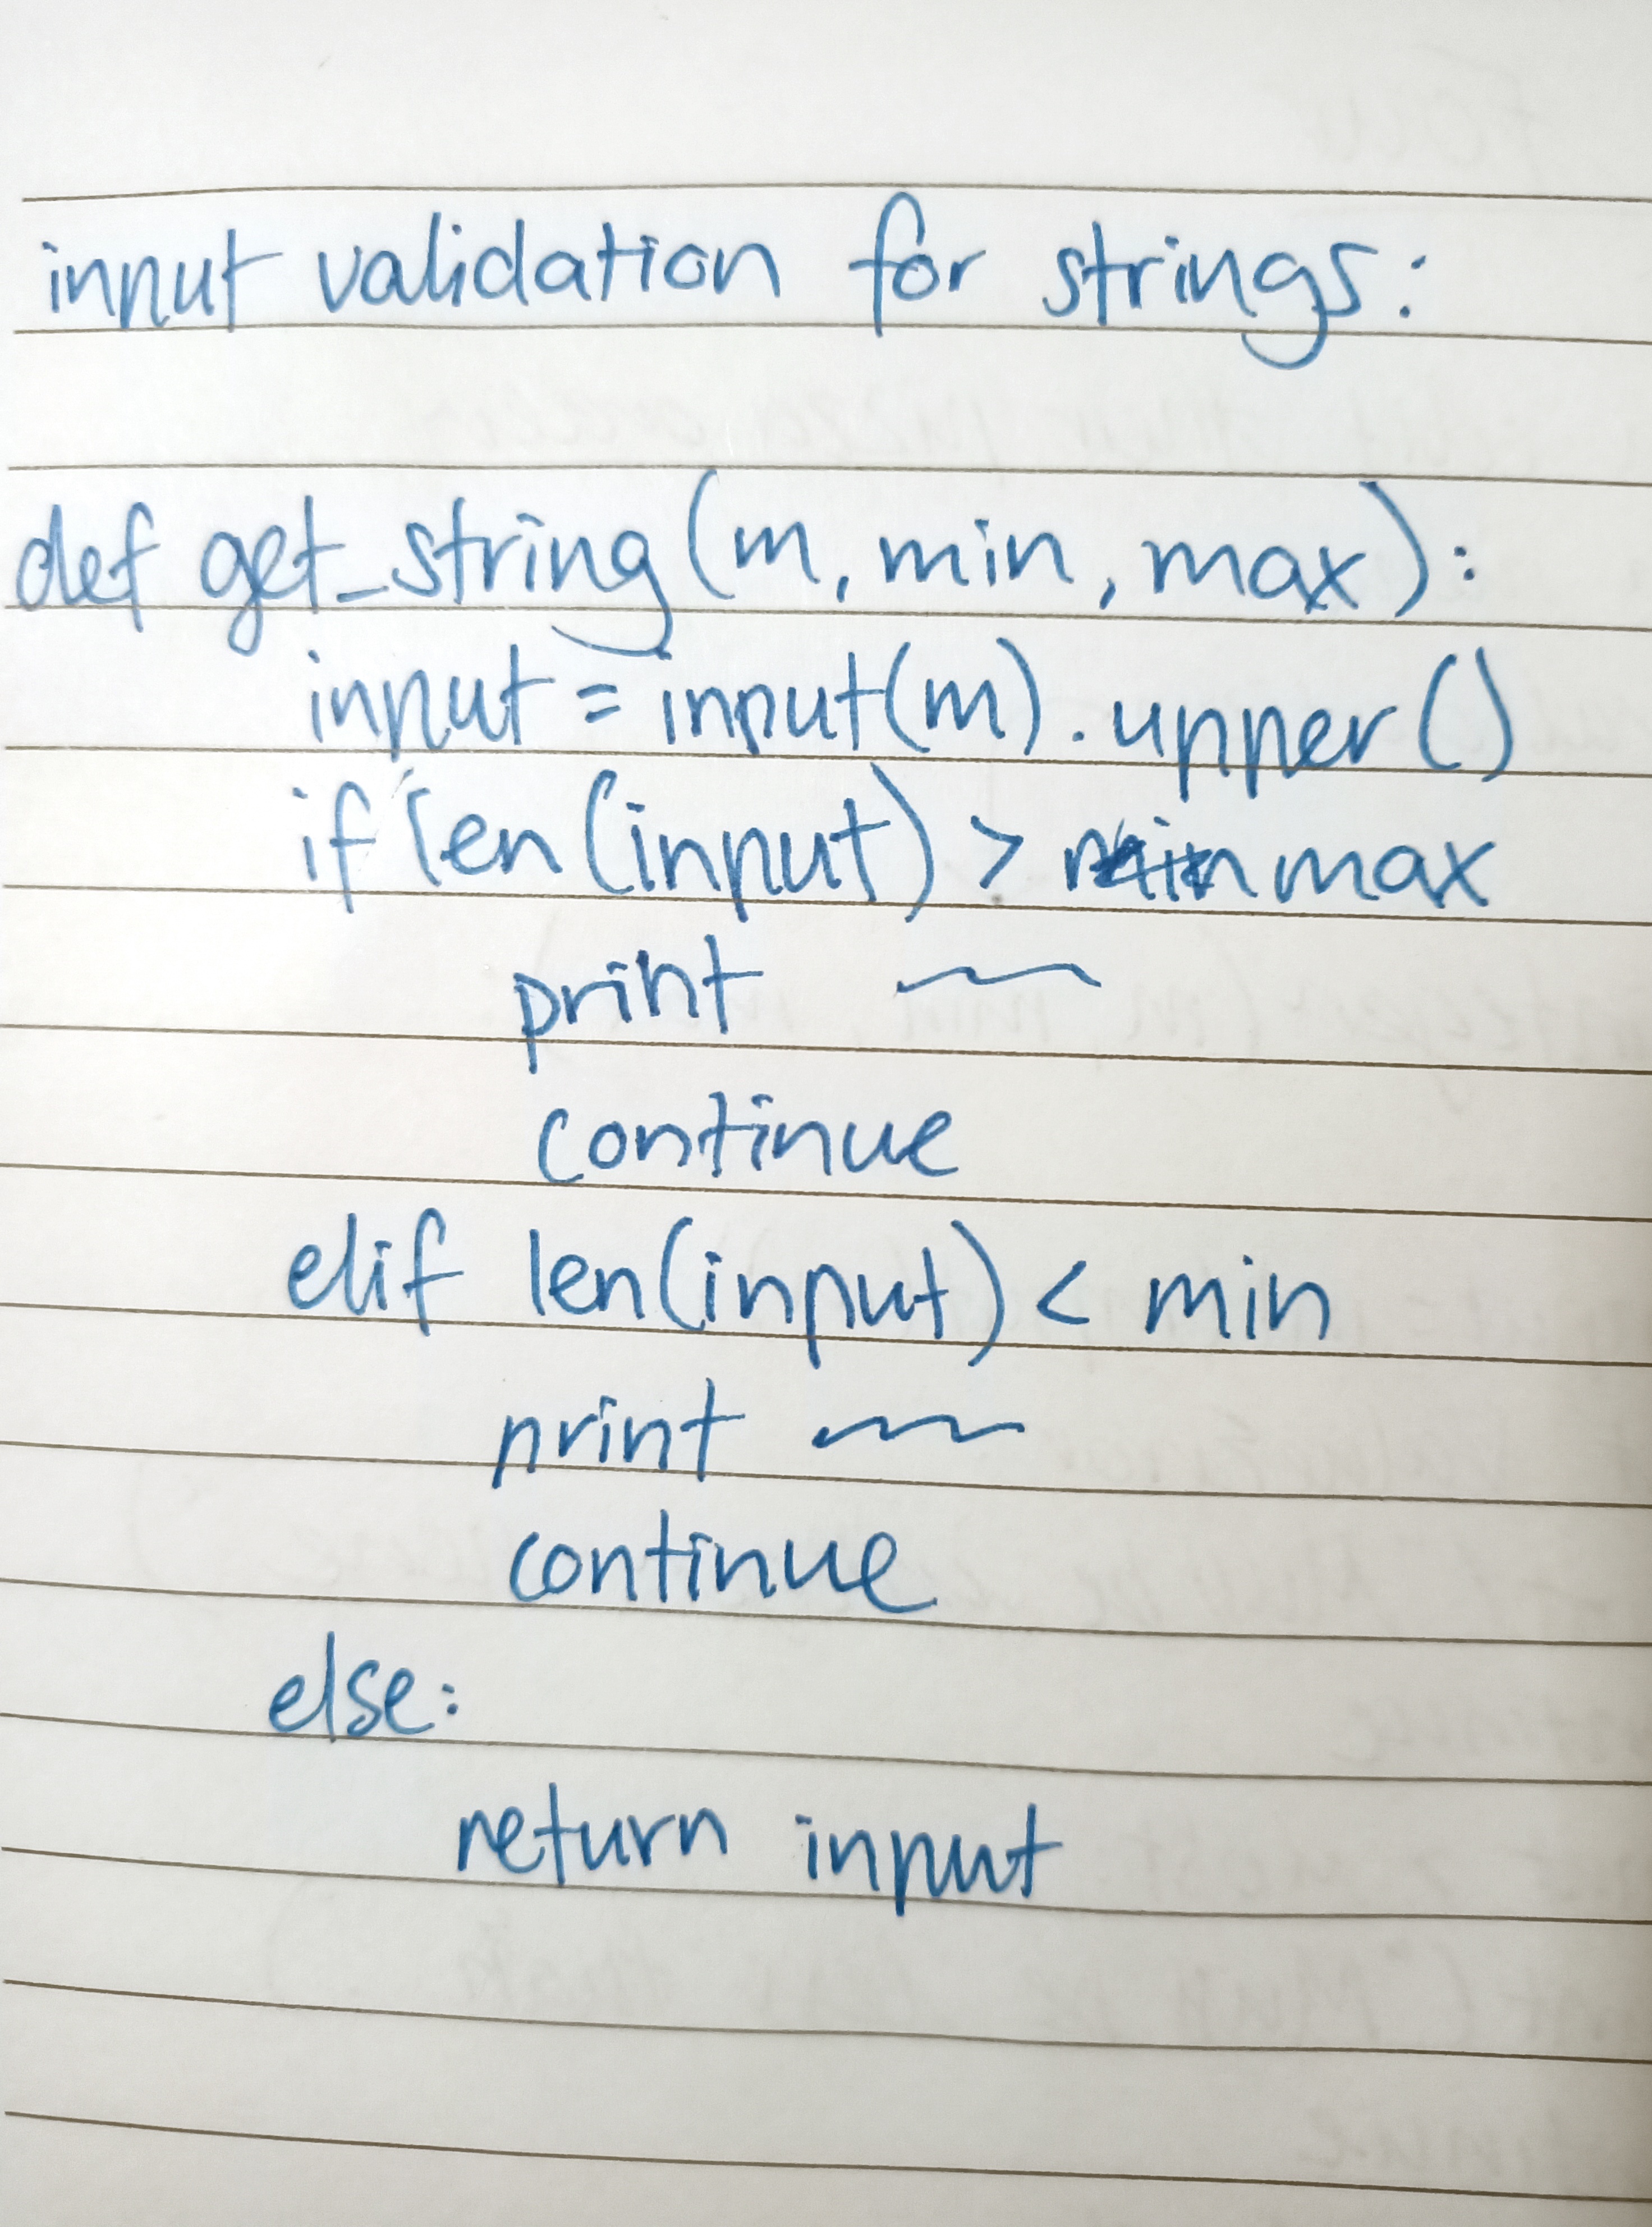 input validation for strings:
def get_string(m, min, max):
input = input(m).upper()
if len(input) > max
print
continue
elif len(input) < min
print
continue
else:
return input